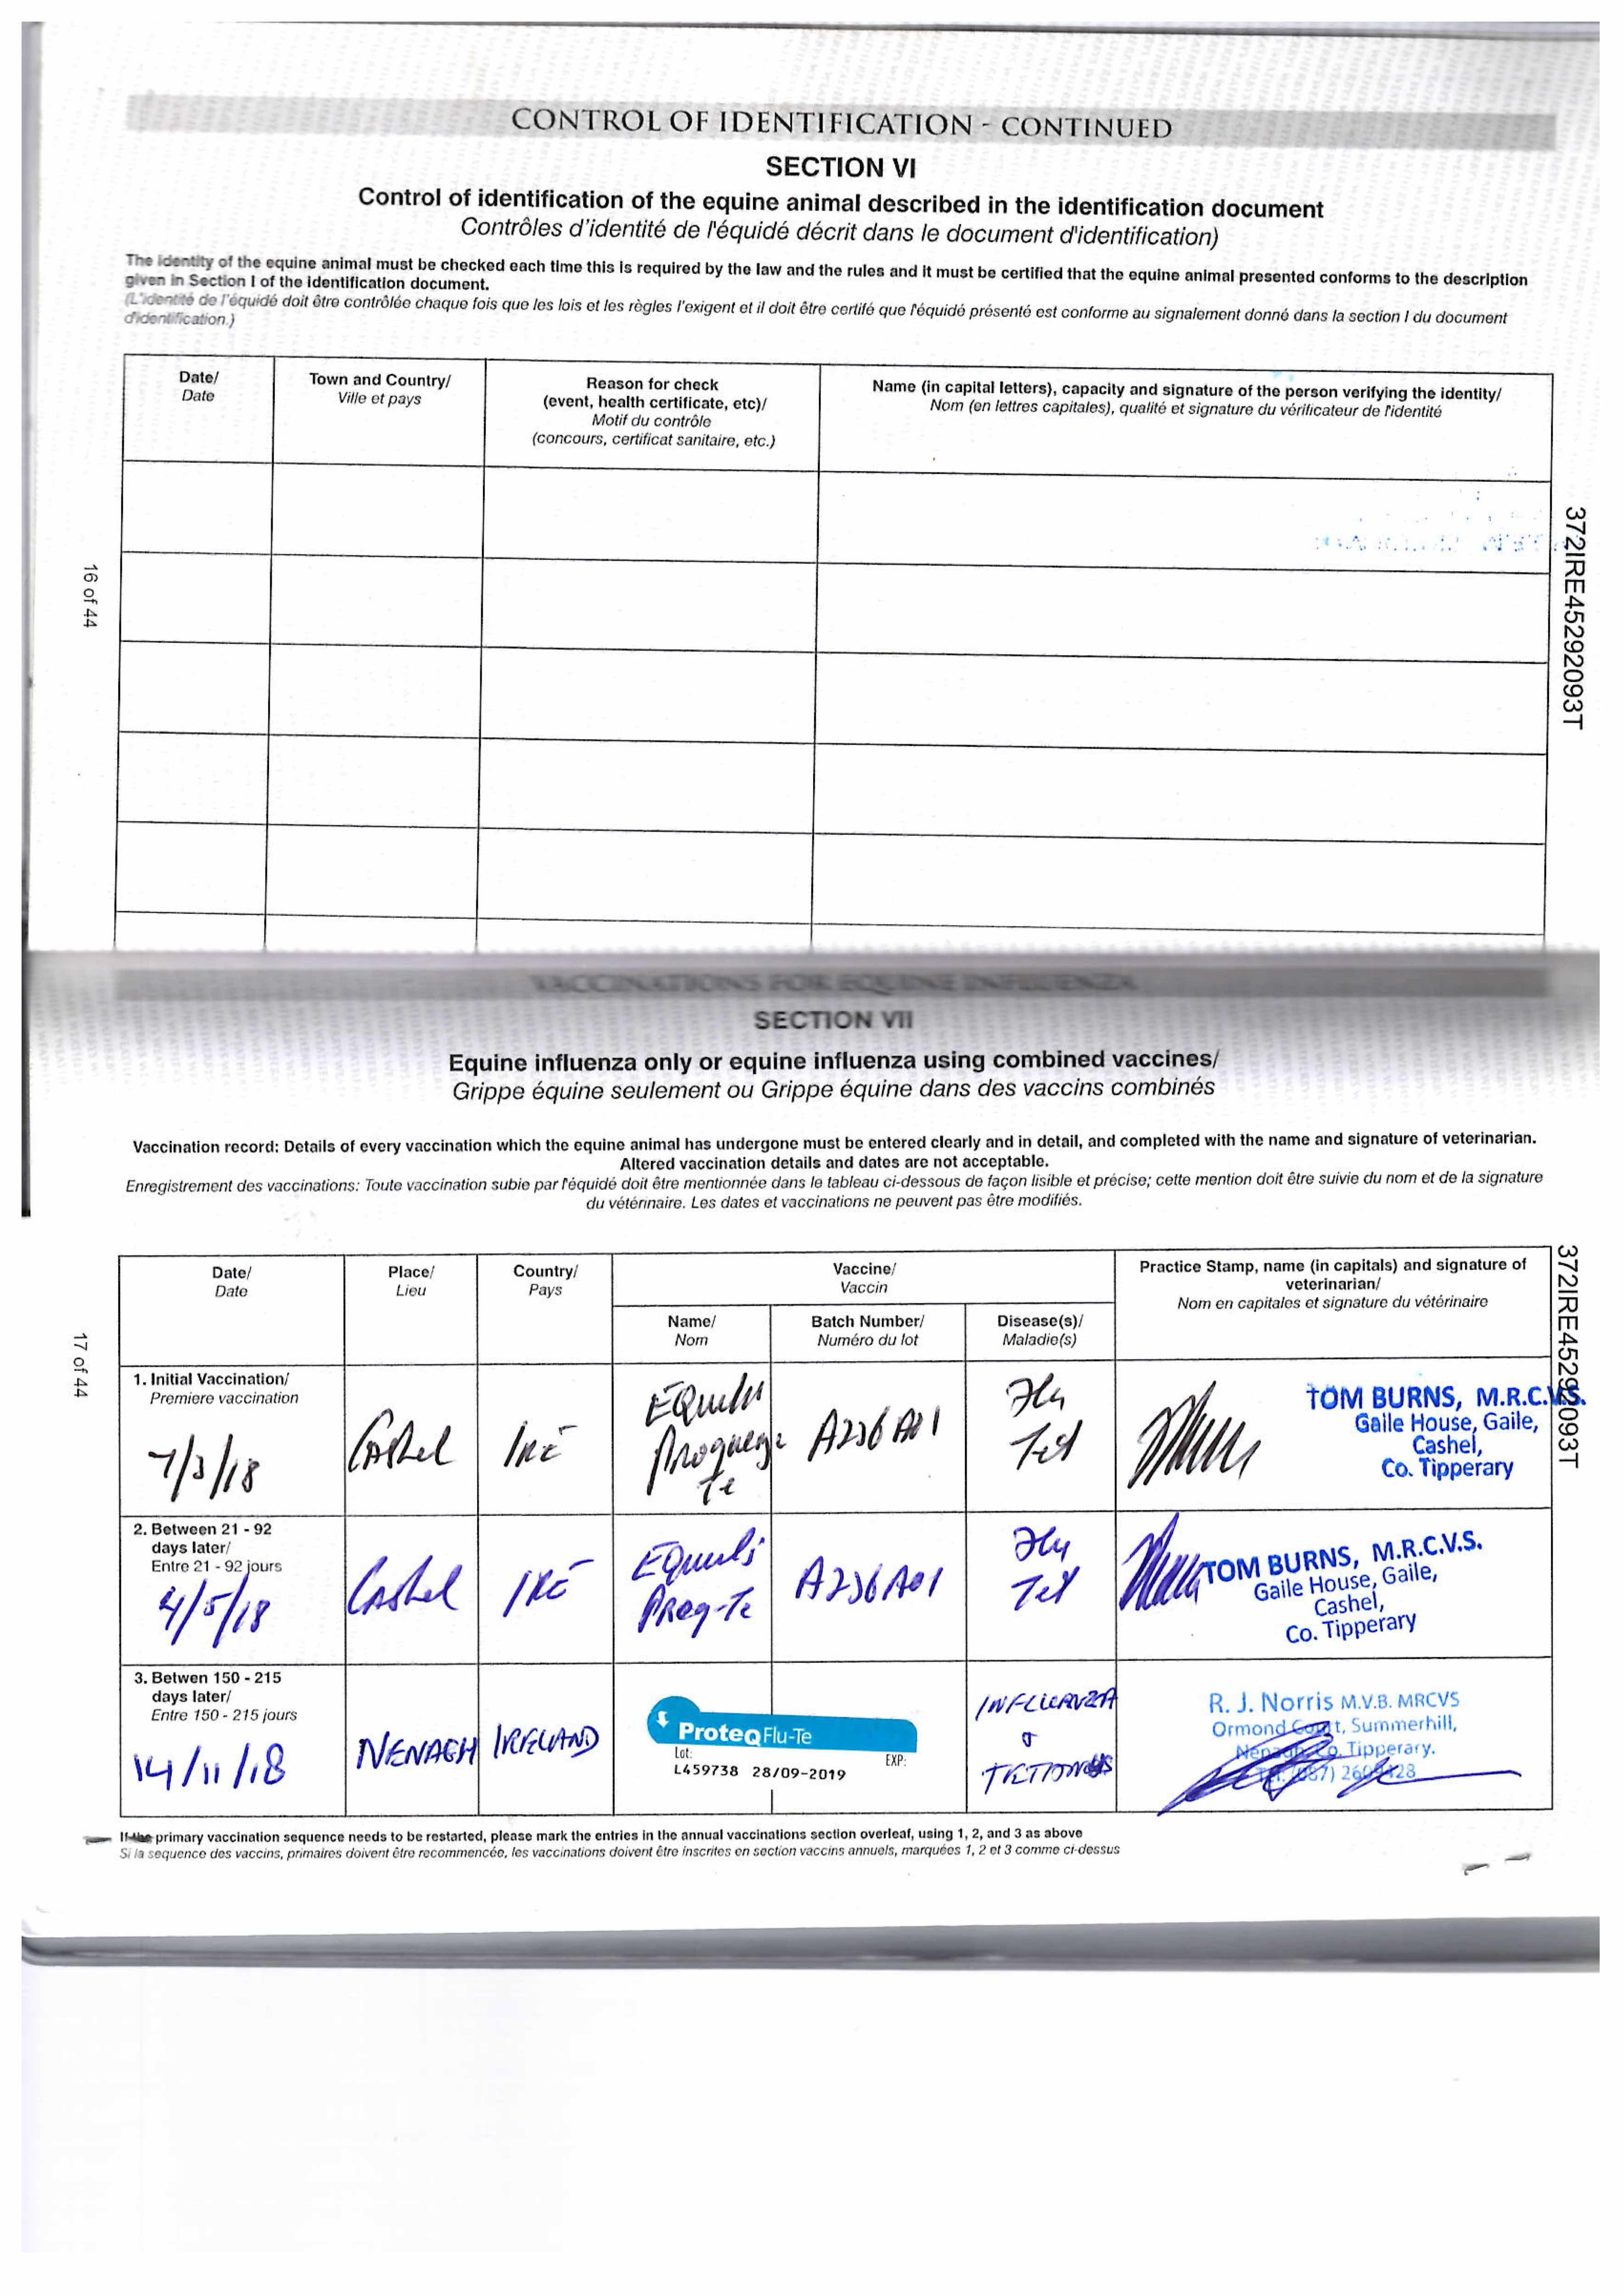 CONTROL OF IDENTIFICATION - CONTINUED
SECTION VI
Control of identification of the equine animal described in the identification document
Contrôles d'identité de l'équidé décrit dans le document d'identification)
The identity of the equine animal must be checked each time this is required by the law and the rules and it must be certified that the equine animal presented conforms to the description
given in Section I of the identification document.
(L'identité de l'équidé doit être contrôlée chaque fois que les lois et les règles l'exigent et il doit être certifé que l'équidé présenté est conforme au signalement donné dans la section I du document
d'identification.)
Date/
Date
Town and Country/
Ville et pays
Reason for check
(event, health certificate, etc)/
Motif du contrôle
(concours, certificat sanitaire, etc.)
Name (in capital letters), capacity and signature of the person verifying the identity/
Nom (en lettres capitales), qualité et signature du vérificateur de l'identité
16 of 44
372IRE45292093T
VACCINATIONS FOR EQUINE INFLUENZA
SECTION VII
Equine influenza only or equine influenza using combined vaccines/
Grippe équine seulement ou Grippe équine dans des vaccins combinés
Vaccination record: Details of every vaccination which the equine animal has undergone must be entered clearly and in detail, and completed with the name and signature of veterinarian.
Altered vaccination details and dates are not acceptable.
Enregistrement des vaccinations: Toute vaccination subie par l'équidé doit être mentionnée dans le tableau ci-dessous de façon lisible et précise; cette mention doit être suivie du nom et de la signature
du vétérinaire. Les dates et vaccinations ne peuvent pas être modifiés.
17 of 44
372IRE45292093T
Date/
Date
Place/
Lieu
Country/
Pays
Vaccine/
Vaccin
Name/
Nom
Batch Number/
Numéro du lot
Disease(s)/
Maladie(s)
Practice Stamp, name (in capitals) and signature of
veterinarian/
Nom en capitales et signature du vétérinaire
1. Initial Vaccination/
Premiere vaccination
7/3/18
Cashel
IRE
Te
A236A01
Flu
Tet
TOM BURNS, M.R.C.V.S.
Gaile House, Gaile,
Cashel,
Co. Tipperary
2. Between 21 - 92
days later/
Entre 21 - 92 jours
4/5/18
Cashel
IRE
Equilis
Preq-Te
A236A01
Flu
Tet
TOM BURNS, M.R.C.V.S.
Gaile House, Gaile,
Cashel,
Co. Tipperary
3. Betwen 150 - 215
days later/
Entre 150 - 215 jours
14/11/18
NENAGH
IRELAND
ProteqFlu-Te
Lot:
EXP:
L459738 28/09-2019
INFLUENZA
&
R. J. Norris M.V.B. MRCVS
Ormond Court, Summerhill,
Nenagh, Co. Tipperary.
If the primary vaccination sequence needs to be restarted, please mark the entries in the annual vaccinations section overleaf, using 1, 2, and 3 as above
Si la sequence des vaccins, primaires doivent être recommencée, les vaccinations doivent être inscrites en section vaccins annuels, marquées 1, 2 et 3 comme ci-dessus